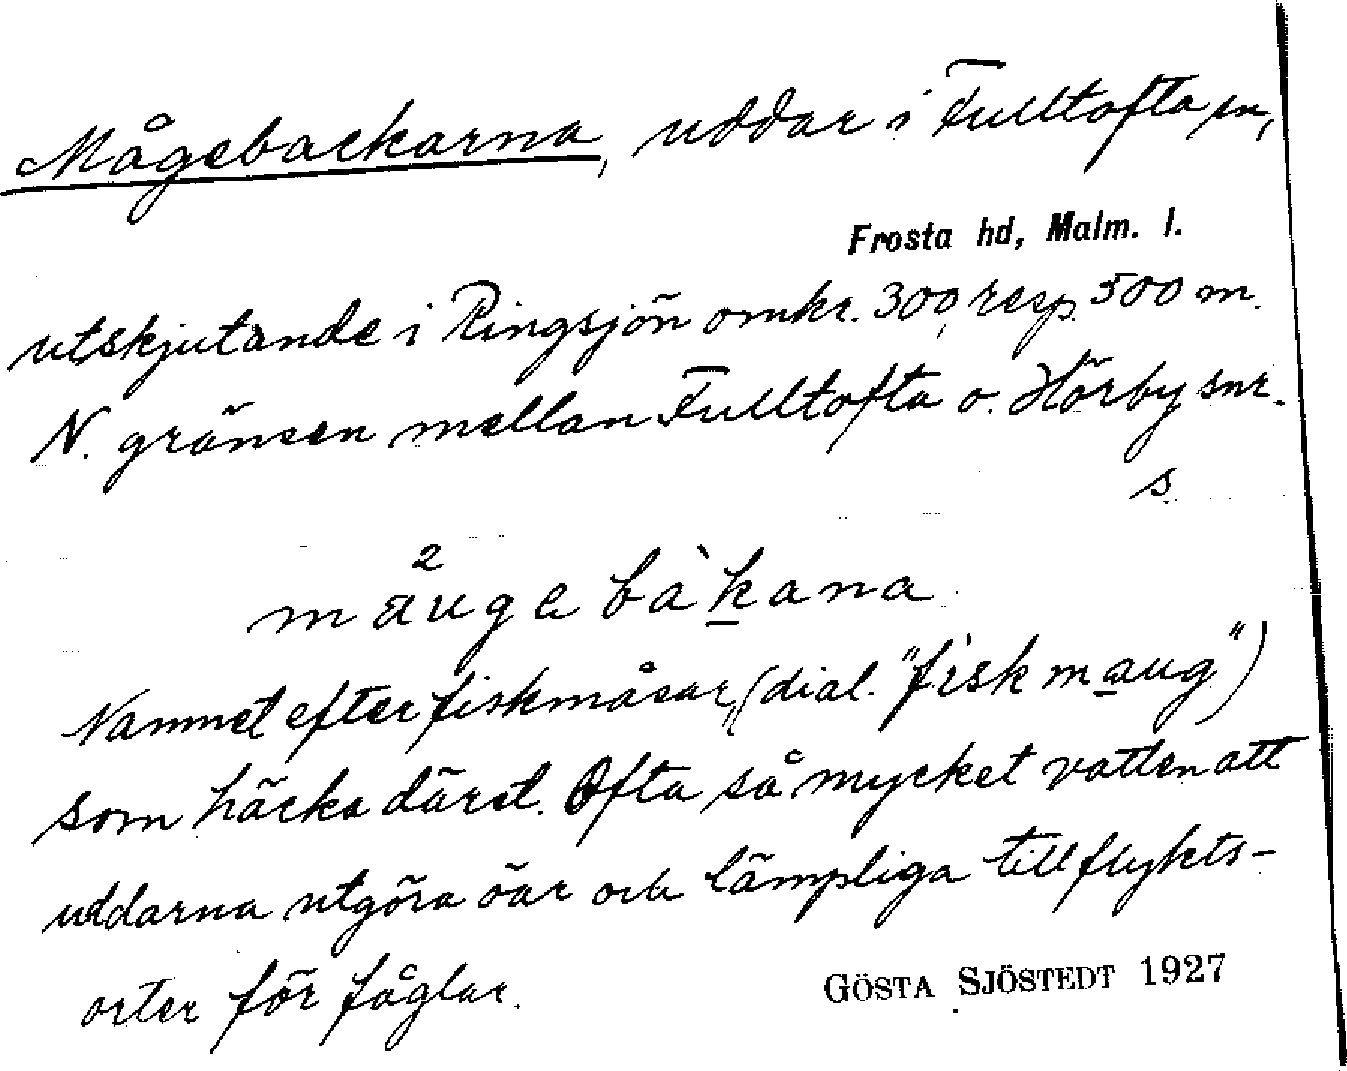 Mågebackarna, uddar i Fulltofta sn,
Frosta hd, Malm. l.
utskjutande i Ringsjön omkr. 300, resp. 500 m.
N. gränsen mellan Fulltofta o. Hörby snr.
s
måugebàkana
Namnet efter fiskmåsar, (dial. "fiskmaug")
som häcka däred. Ofta så mycket vatten att
uddarna utgöra öar och lämpliga tillflykts-
orter för fåglar.
GÖSTA SJÖSTEDT 1927